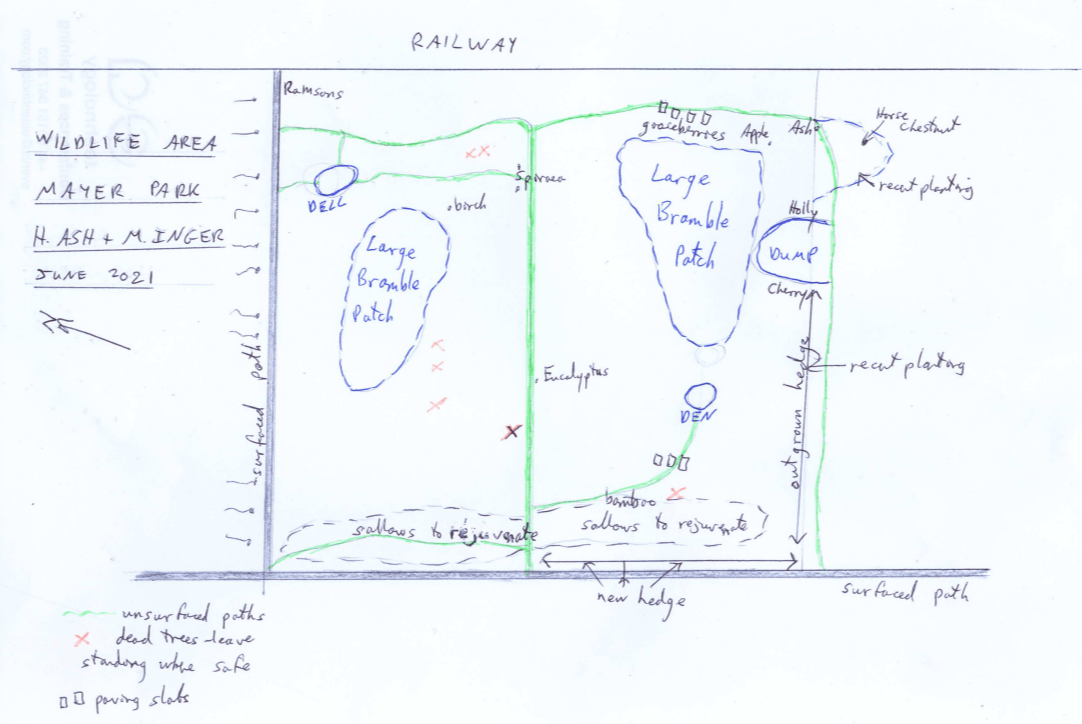 RAILWAY
Ramsons
WILDLIFE AREA
MAYER PARK
H. ASH + M. INGER
JUNE 2021
gooseberries
Apple
Ash
Horse
Chestnut
recent planting
Spiraea
DELL
birch
Large
Bramble
Patch
Large
Bramble
Patch
Holly
DUMP
Cherry
surfaced path
Eucalyptus
outgrown hedge
recent planting
DEN
bamboo
sallows to rejuvenate
sallows to rejuvenate
new hedge
surfaced path
unsurfaced paths
dead trees - leave
standing where safe
paving slabs